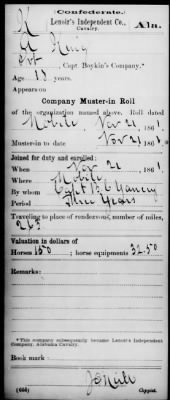 Confederate.
K Lenoir's Independent Co., Ala.
Cavalry.
A King
Pvt, Capt. Boykin's Company.*
Age years.
Appears on
Company Muster-in Roll
of the organization named above. Roll dated
Mobile, Nov 21, 1861.
Muster-in to date Nov 21, 1861
Joined for duty and enrolled:
When Nov 21, 1861.
Where Mobile
By whom Capt B C Yancey
Period Three Years
Traveling to place of rendezvous, number of miles,
263
Valuation in dollars of
Horses 150; horse equipments 32.50
Remarks:
*This company subsequently became Lenoir's Independent
Company, Alabama Cavalry.
Book mark:
(656)
Copyist.